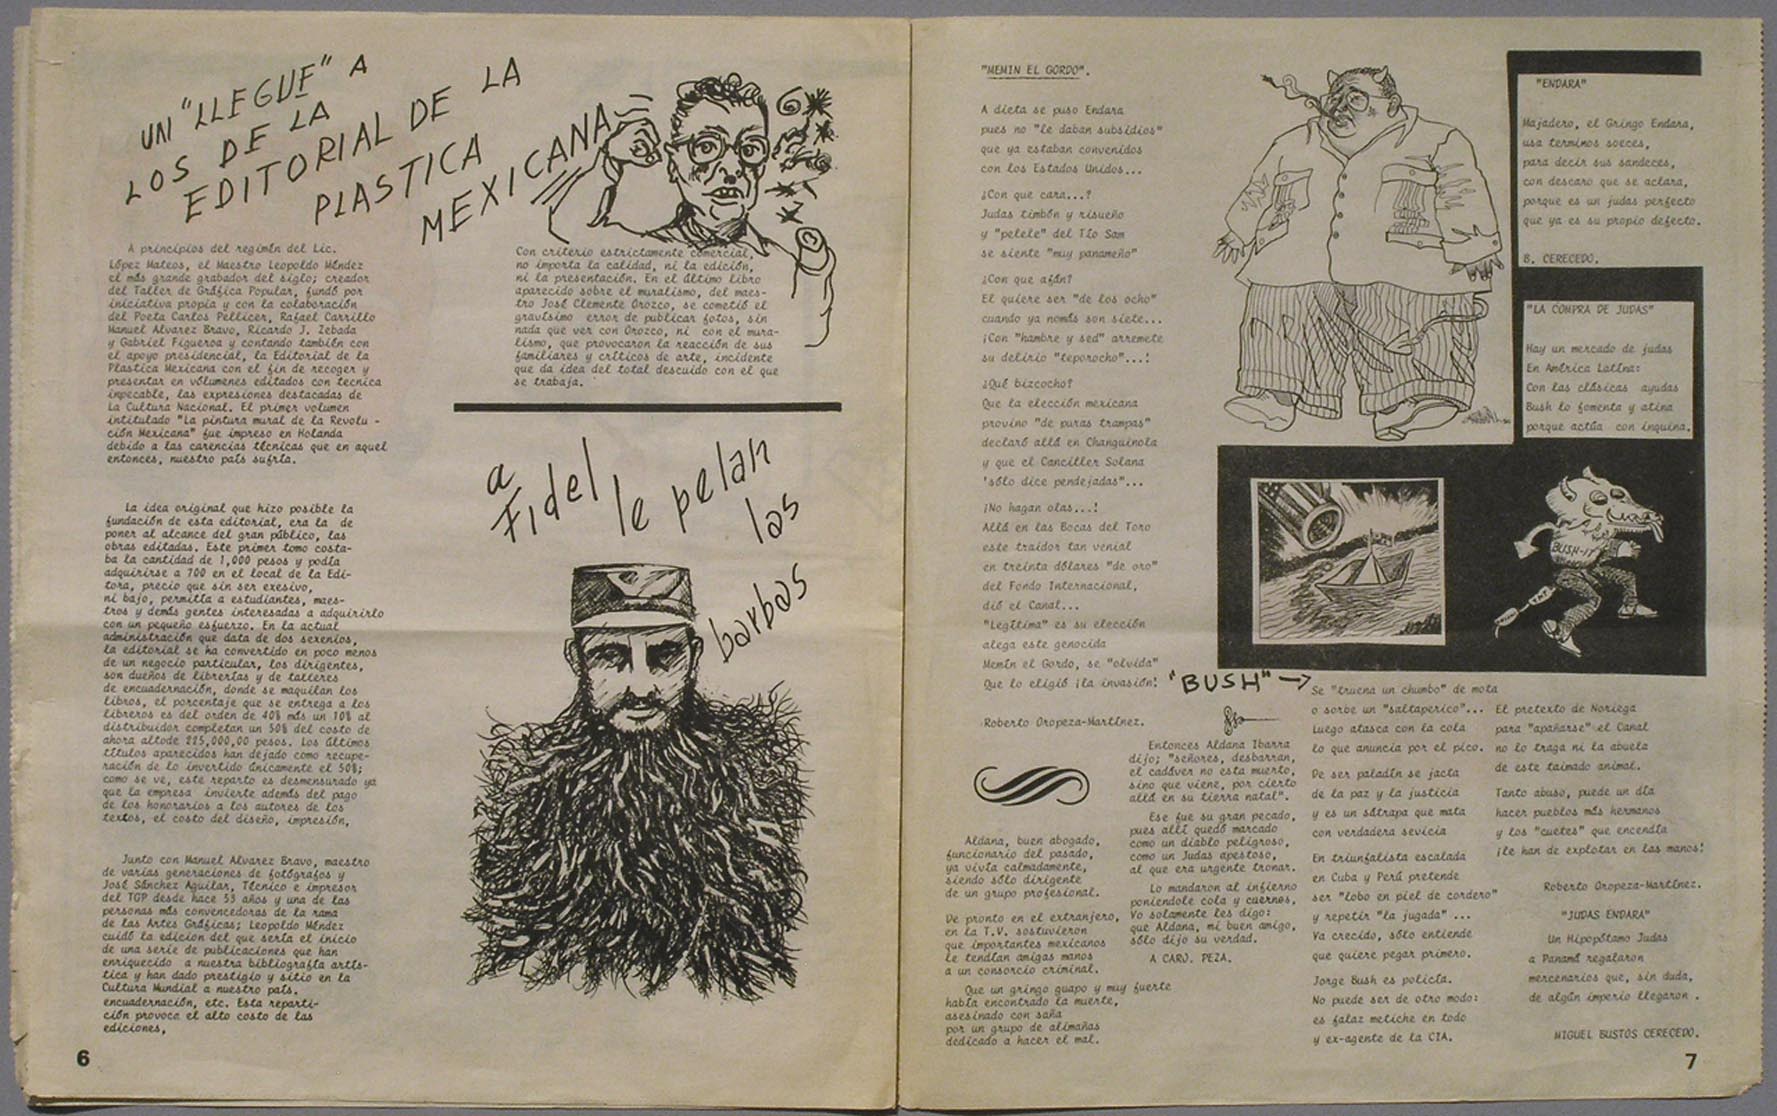 UN "LLEGUE" A
LOS DE LA
EDITORIAL DE LA
PLASTICA
MEXICANA
A principios del regimén del Lic.
López Mateos, el Maestro Leopoldo Méndez
el más grande grabador del siglo; creador
del Taller de Gráfica Popular, fundó por
iniciativa propia y con la colaboración
del Poeta Carlos Pellicer, Rafael Carrillo
Manuel Alvarez Bravo, Ricardo J. Zebada
y Gabriel Figueroa y contando también con
el apoyo presidencial, la Editorial de la
Plastica Mexicana con el fin de recoger y
presentar en vólumenes editados con tecnica
inpecable, las expresiones destacadas de
La Cultura Nacional. El primer volumen
intitulado "La pintura mural de la Revolu -
ción Mexicana" fue impreso en Holanda
debido a las carencias técnicas que en aquel
entonces, nuestro país sufría.
La idea original que hizo posible la
fundación de esta editorial, era la de
poner al alcance del gran público, las
obras editadas. Este primer tomo costa-
ba la cantidad de 1,000 pesos y podía
adquirirse a 700 en el local de la Edi-
tora, precio que sin ser exesivo,
ni bajo, permitía a estudiantes, maes-
tros y demás gentes interesadas a adquirirlo
con un pequeño esfuerzo. En la actual
administración que data de dos sexenios,
la editorial se ha convertido en poco menos
de un negocio particular, los dirigentes,
son dueños de librerías y de talleres
de encuadernación, donde se maquilan los
libros, el porcentaje que se entrega a los
libreros es del orden de 40% más un 10% al
distribuidor completan un 50% del costo de
ahora altode 225,000,00 pesos. Los últimos
títulos aparecidos han dejado como recupe-
ración de lo invertido únicamente el 50%;
como se ve, este reparto es desmensurado ya
que la empresa invierte además del pago
de los honorarios a los autores de los
textos, el costo del diseño, impresión,
Junto con Manuel Alvarez Bravo, maestro
de varias generaciones de fotógrafos y
José Sánchez Aguilar, Técnico e impresor
del TGP desde hace 53 años y una de las
personas más convencedoras de la rama
de las Artes Gráficas; Leopoldo Méndez
cuidó la edicion del que sería el inicio
de una serie de publicaciones que han
enriquecido a nuestra bibliografía artís-
tica y han dado prestigio y sitio en la
Cultura Mundial a nuestro país.
encuadernación, etc. Esta reparti-
ción provoca el alto costo de las
ediciones,
6
Con criterio estrictamente comercial,
no importa la calidad, ni la edición,
ni la presentación. En el último libro
aparecido sobre el muralismo, del maes-
tro José Clemente Orozco, se cometió el
gravísimo error de publicar fotos, sin
nada que ver con Orozco, ni con el mura-
lismo, que provocaron la reacción de sus
familiares y críticos de arte, incidente
que da idea del total descuido con el que
se trabaja.
a
Fidel le pelan
las
barbas
"MEMIN EL GORDO".
A dieta se puso Endara
pues no "le daban subsidios"
que ya estaban convenidos
con los Estados Unidos...
¿Con que cara...?
Judas timbón y risueño
y "pelele" del Tío Sam
se siente "muy panameño"
¿Con que afán?
El quiere ser "de los ocho"
cuando ya nomás son siete...
¡Con "hambre y sed" arremete
su delirio "teporocho"...!
¿Qué bizcocho?
Que la elección mexicana
provino "de puras trampas"
declaró allá en Changuinola
y que el Canciller Solana
'sólo dice pendejadas"...
¡No hagan olas...!
Allá en las Bocas del Toro
este traidor tan venial
en treinta dólares "de oro"
del Fondo Internacional,
dió el Canal...
"Legítima" es su elección
alega este genocida
Memín el Gordo, se "olvida"
Que lo eligió ¡la invasión!
Roberto Oropeza-Martínez.
Aldana, buen abogado,
funcionario del pasado,
ya vivía calmadamente,
siendo sólo dirigente
de un grupo profesional.
De pronto en el extranjero,
en la T.V. sostuvieron
que importantes mexicanos
le tendían amigas manos
a un consorcio criminal.
Que un gringo guapo y muy fuerte
había encontrado la muerte,
asesinado con saña
por un grupo de alimañas
dedicado a hacer el mal.
Entonces Aldana Ibarra
dijo; "señores, desbarran,
el cadáver no esta muerto,
sino que viene, por cierto
allá en su tierra natal".
Ese fue su gran pecado,
pues allí quedó marcado
como un diablo peligroso,
como un Judas apestoso,
al que era urgente tronar.
Lo mandaron al infierno
poniendole cola y cuernos,
Yo solamente les digo:
que Aldana, mi buen amigo,
sólo dijo su verdad.
A CARO. PEZA.
"ENDARA"
Majadero, el Gringo Endara,
usa terminos soeces,
para decir sus sandeces,
con descaro que se aclara,
porque es un judas perfecto
que ya es su propio defecto.
B. CERECEDO.
"LA COMPRA DE JUDAS"
Hay un mercado de judas
En América Latina:
Con las clásicas ayudas
Bush lo fomenta y atina
porque actúa con inquina.
BUSH-IT
"BUSH" →
Se "truena un chumbo" de mota
o sorbe un "saltaperico"...
Luego atasca con la cola
lo que anuncia por el pico.
De ser paladín se jacta
de la paz y la justicia
y es un sátrapa que mata
con verdadera sevicia
En triunfalista escalada
en Cuba y Perú pretende
ser "lobo en piel de cordero"
y repetir "la jugada" ...
Ya crecido, sólo entiende
que quiere pegar primero.
Jorge Bush es policía.
No puede ser de otro modo:
es falaz metiche en todo
y ex-agente de la CIA.
El pretexto de Noriega
para "apañarse" el Canal
no lo traga ni la abuela
de este taimado animal.
Tanto abuso, puede un día
hacer pueblos más hermanos
y los "cuetes" que encendía
¡le han de explotar en las manos!
Roberto Oropeza-Martínez.
"JUDAS ENDARA"
Un Hipopótamo Judas
a Panamá regalaron
mercenarios que, sin duda,
de algún imperio llegaron .
MIGUEL BUSTOS CERECEDO.
7